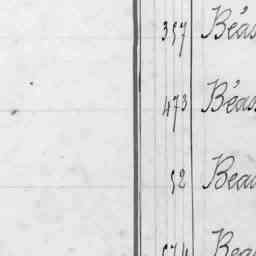 357 Béas
473 Béas
52 Beau
574 Bea